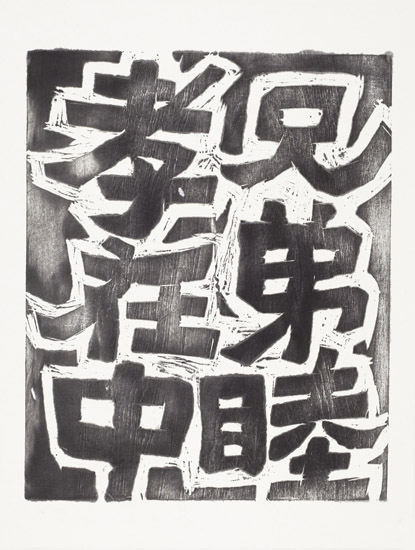 兄弟睦
孝在中